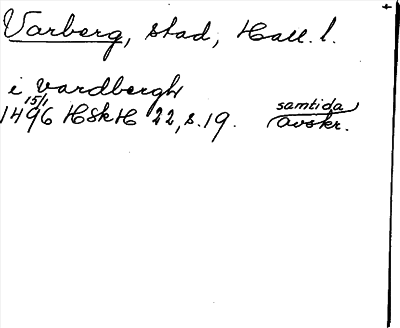 Varberg, stad, Hall. l.
i vardbergh
15/1 samtida
1496 HSkH 22, s. 19. avskr.